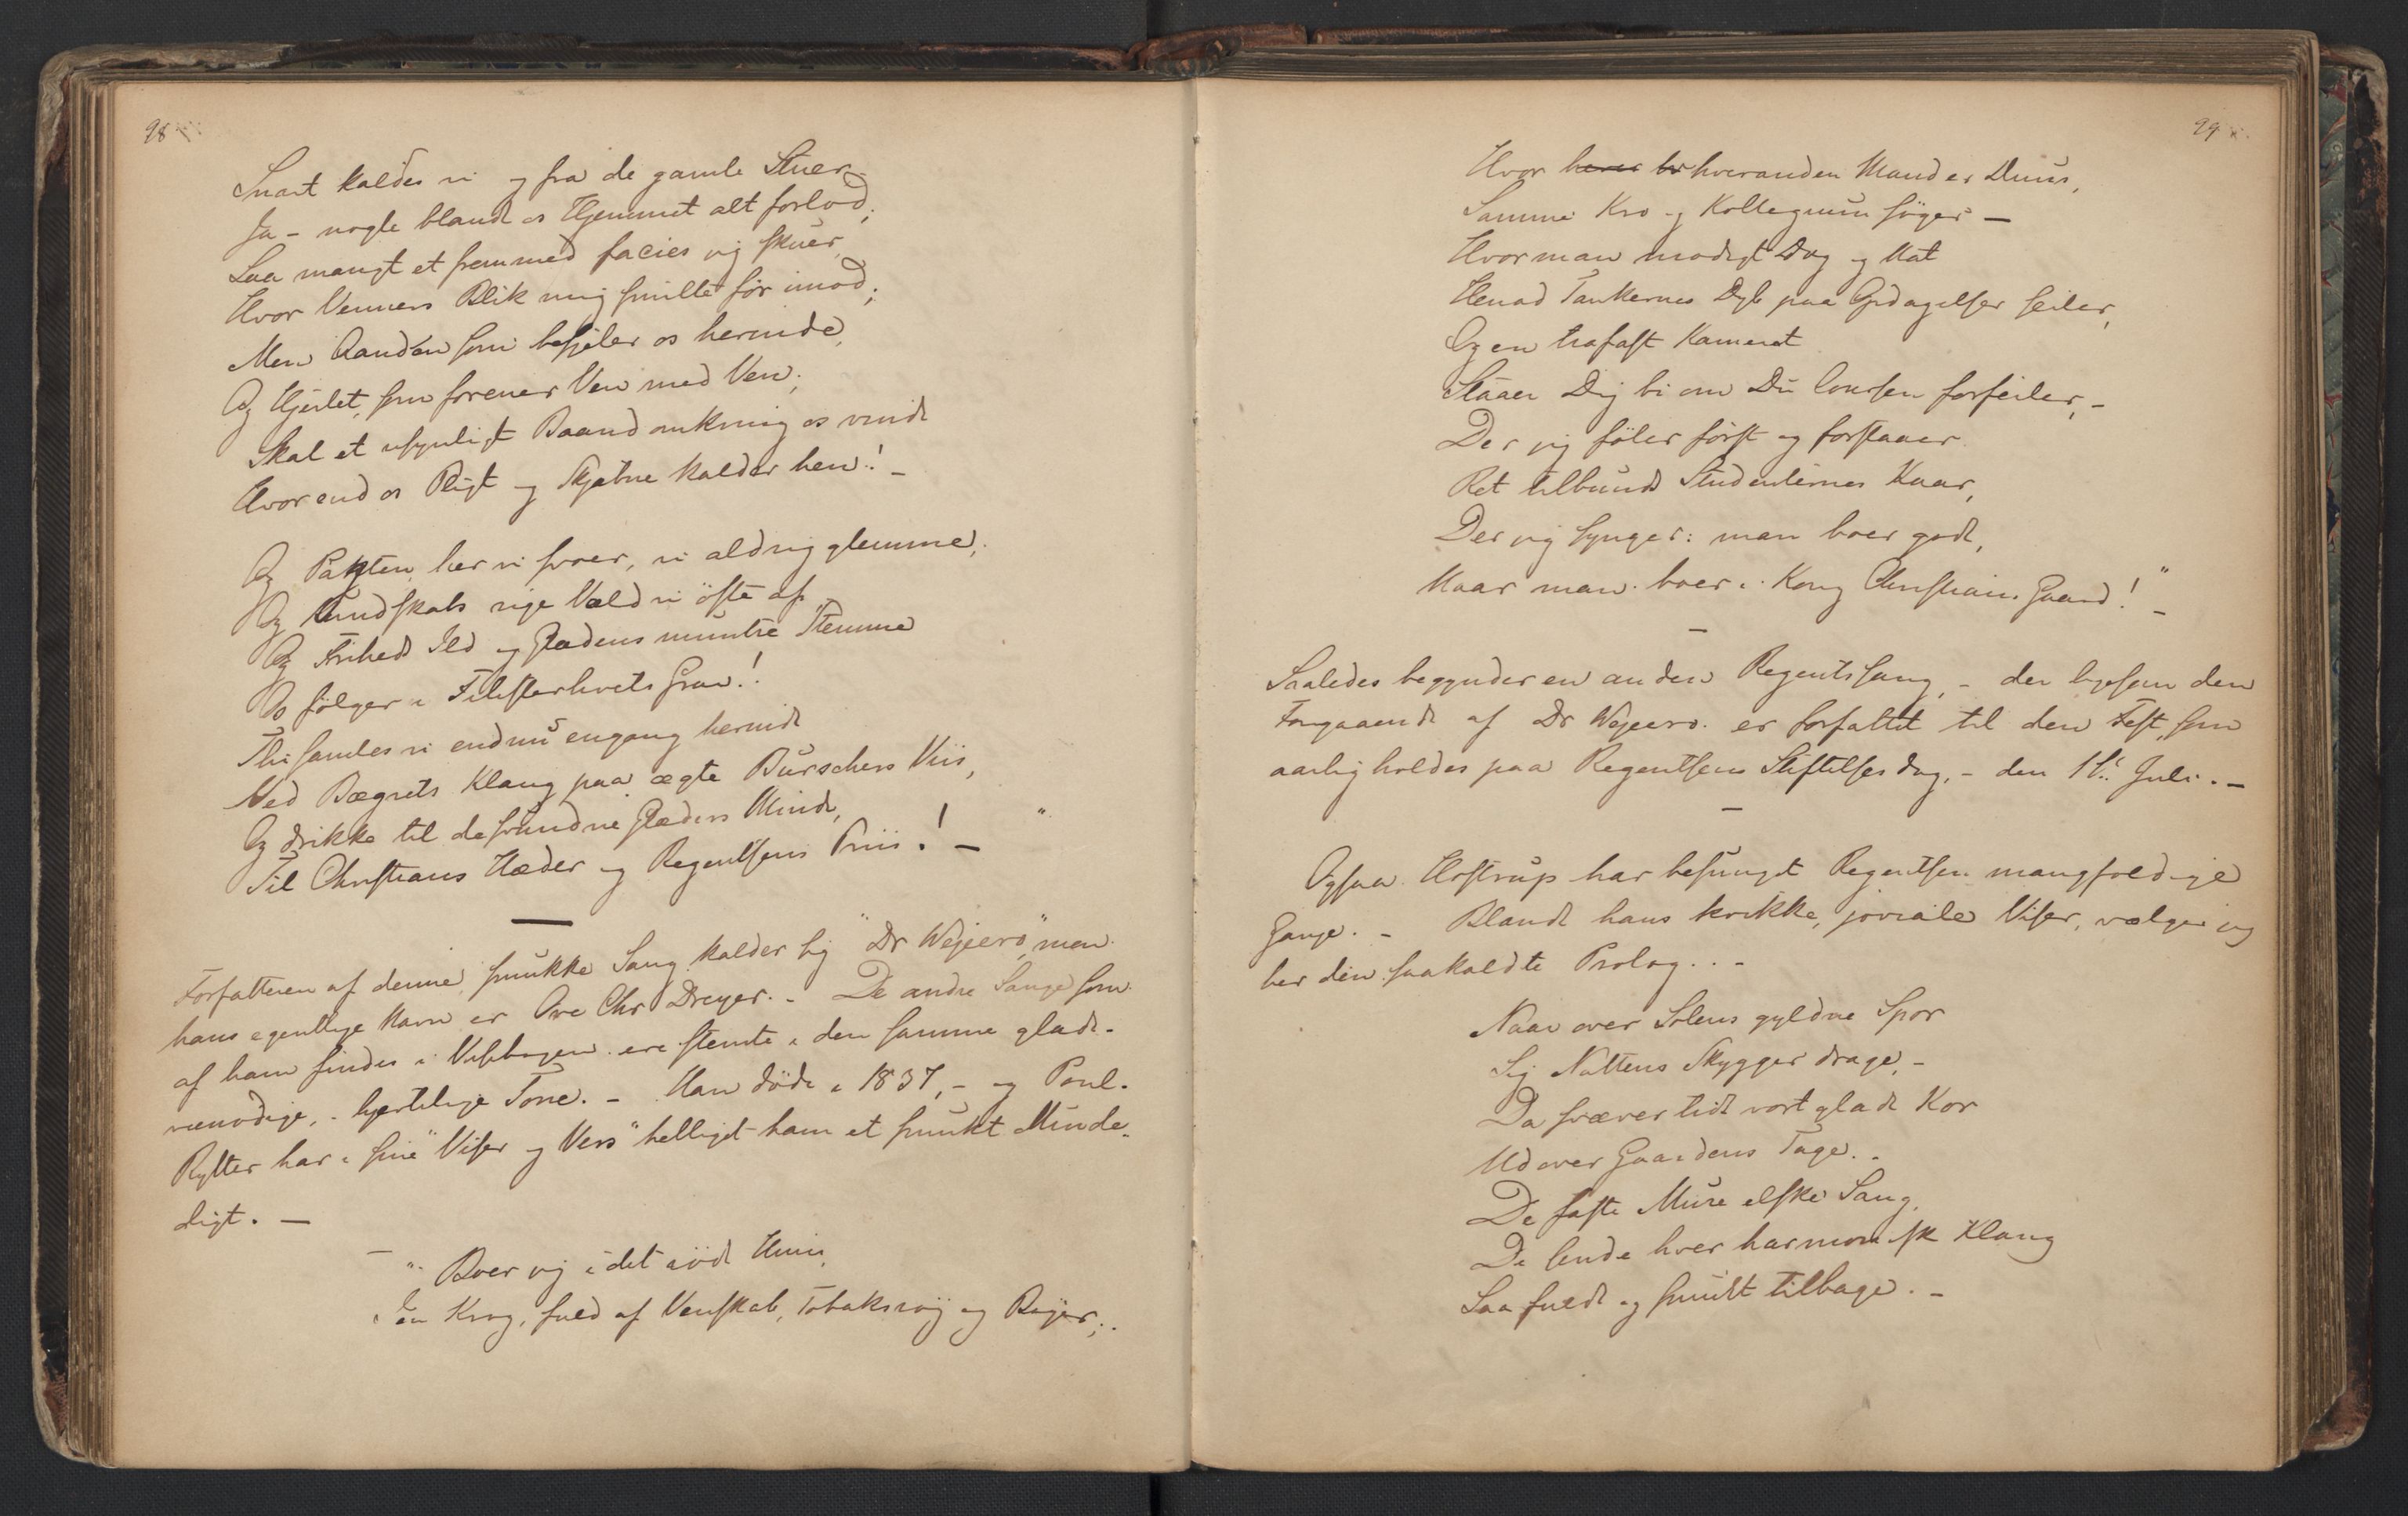 98
Snart kaldes vi og fra de gamle Stuer
Ja – nogle blandt os Hjemmet alt forlod;
Saa mangt et fremmed facies jeg skuer,
Hvor Venners Blik mig smilte før imod;
Men Aanden som besjæler os herinde,
Og Hjertet, som forener Ven med Ven;
Skal et usynligt Baand omkring os vinde
Hvor end os Pligt og Skjæbne kalder hen! –
Og Pagten, her vi svoer, vi aldrig glemme,
Og Kundskabs rige Væld vi öste af
Og Frihed Ild og Glædens muntre Stemme
Os følger i Filisterlivets Grav!
Thi samles vi endnu engang herinde
Ved Bægrets Klang paa ægte Burschers Viis,
Og drikke til de svundne Glæders Minde,
Til Christians Hæder og Regentsens Priis! – "
Forfatteren af denne smukke Sang kalder sig "Dr Wejeero", men
hans egentlige Navn er Ove Chr Dreyer. – De andre Sange som
af ham findes i Visebogen ere stemte i den samme glade-
vemodige, – hjertelige Tone. – Han døde i 1837, – og Poul-
Rytter har i sine "Viser og Vers" helliget ham et smukt Minde-
digt. –
– " Boer jeg i det røde Huus,
En Krog, fuld af Venskab, Tobaksrøg og Bøger;
99
Hvor hveranden Mand er Duus,
Samme Kro og Kollegium søger –
Hvor man modigt Dag og Nat
Henad Tankernes Dyb paa Opdagelser seiler,
Og en trofast Kamerat
Staaer Dig bi om Du Coursen forfeiler, –
Der jeg föler först og forstaaer
Ret tilbunds Studenternes Kaar,
Der jeg synger: man boer godt,
Naar man boer i Kong Christians Gaard! " –
–
Saaledes begynder en anden Regentssang, – der ligesom den
Forgaaende af Dr Wejeero. er forfattet til den Fest, som
aarlig holdes paa Regentsens Stiftelsesdag, – den 1ste Juli. –
–
Ogsaa Hostrup har besunget Regentsen mangfoldige
Gange. – Blandt hans kvikke, joviale Viser, vælger jeg
her den saakaldte Prolog. . –
Naar over Solens gyldne Spor
Sig Nattens Skygger drage, –
Da svæver tidt vort glade Kor
Ud over Gaardens Tage. .
De faste Mure elske Sang,
De sende hver harmonisk Klang
Saa fuldt og smukt tilbage. –